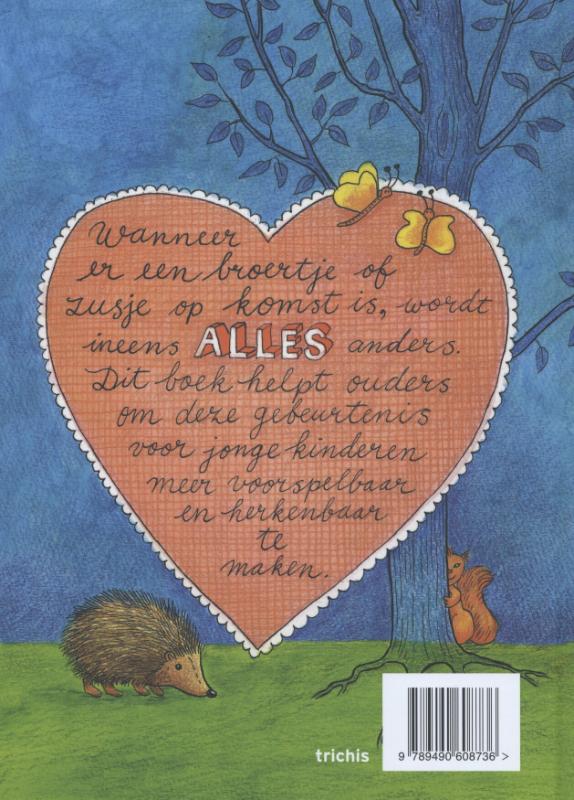 Wanneer
er een broertje of
zusje op komst is, wordt
ineens ALLES anders.
Dit boek helpt ouders
om deze gebeurtenis
voor jonge kinderen
meer voorspelbaar
en herkenbaar
te
maken.
trichis
9 789490 608736 >